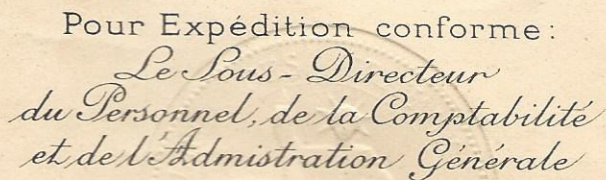 Pour Expédition conforme:
Le Sous-Directeur
du Personnel, de la Comptabilité
et de l'Admistration Générale